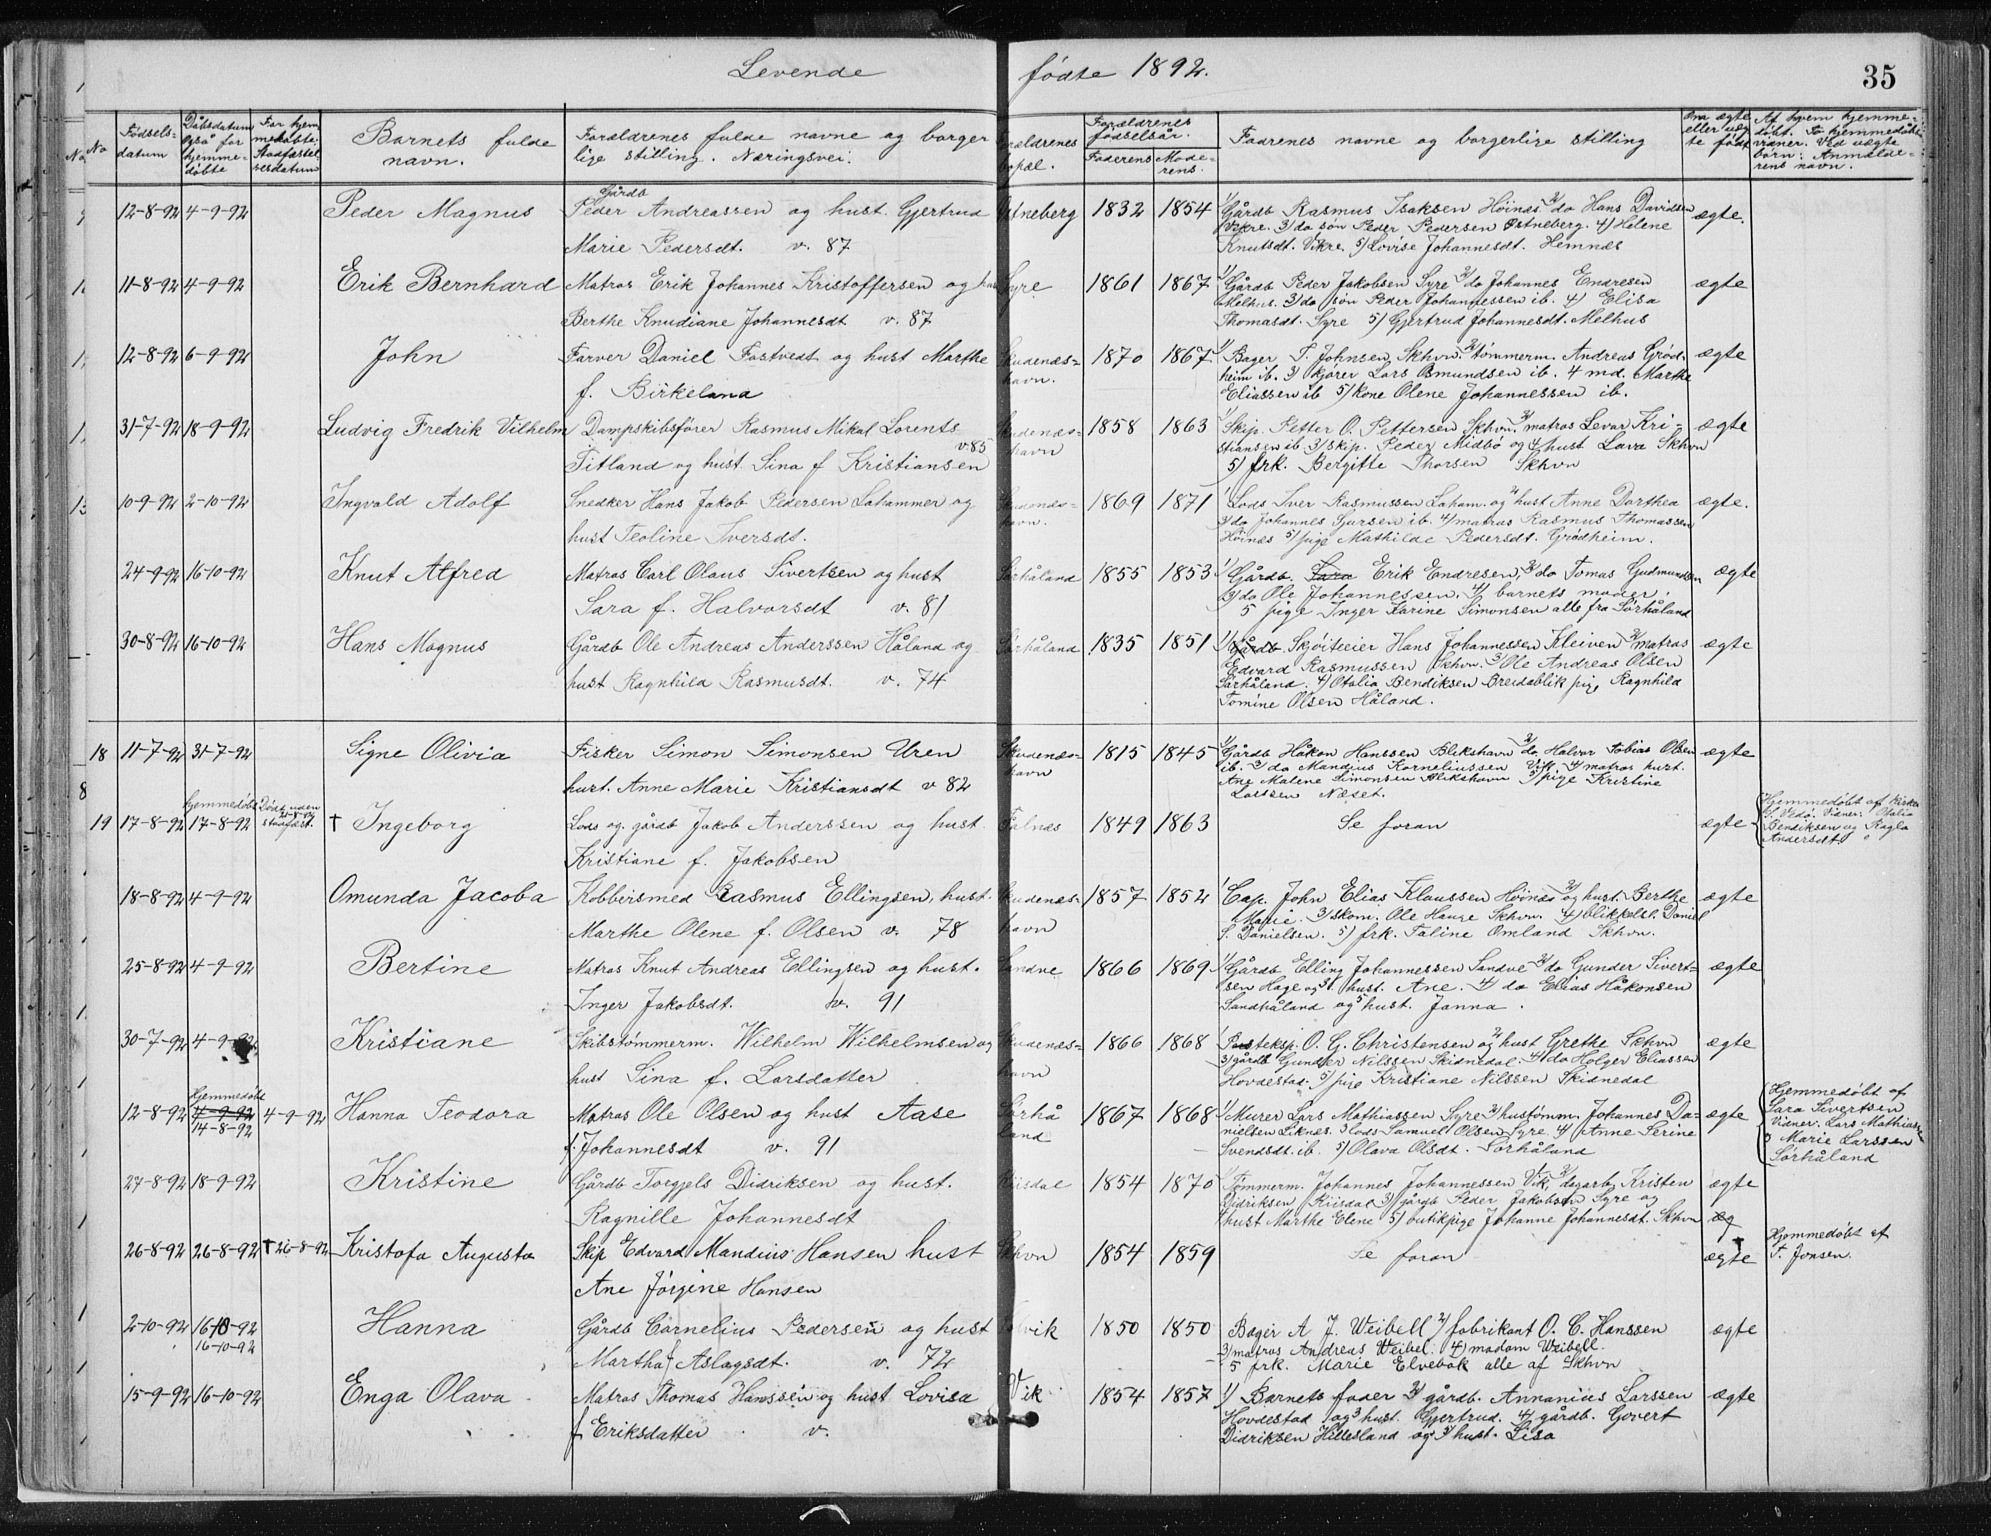 Levende fødte 1892. 35
No Fødselsdatum Dåbsdatum også for hjemmedøbte For hjemmedøbte: Stadfæstelsesdatum Barnets fulde navn. Forældrenes fulde navne og borgerlige stilling. Næringsvei. Forældrenes bopæl. Forældrenes fødselsår. Faderens Moderens. Fadrenes navne og borgerlige stilling Om ægte eller uægte født Af hvem hjemmedøbt. For hjemmedøbte vidner. Ved uægte børn: Anmelderens navn.
12-8-92 4-9-92 Peder Magnus Gårdb Peder Andreassen og hust. Gjertrud Østneberg 1832 1854 1/ Gårdb Rasmus Isaksen Høines 2/ do Hans Davidsen ægte.
Marie Pedersdt. v. 87 Vikre. 3/ do søn Peder Pedersen Østneberg. 4/ Helene
Knutsdt. Vikre. 5/ Lovise Johannesdt. Hemnes
11-8-92 4-9-92 Erik Bernhard Matros Erik Johannes Kristoffersen og hus Syre 1861 1867 1/ Gårdb Peder Jakobsen Syre 2/ do Johannes Endresen ægte
Berthe Knudiane Johannesdt v. 87 Melhus. 3/ do søn Peder Johannessen ib. 4/ Elisa
Thomasdt. Syre 5/ Gjertrud Johannesdt. Melhus
12-8-92 6-9-92 John Farver Daniel Fostvedt og hust Marthe Skudenæshavn. 1870 1867 1/ Bager P. Johnsen Skhvn. 2/ tømmerm. Andreas Grød- ægte
f. Birkeland heim ib. 3/ kjører Lars Osmundsen ib. 4 md. Marthe
Eliassen ib 5/ kone Olene Johannessen ib.
31-7-92 18-9-92 Ludvig Fredrik Vilhelm Dampskibsfører Rasmus Mikal Lorents Skudenæshavn 1858 1863 1/ Skip. Petter O. Pettersen Skhvn. 2/ matros Levar Kri- ægte
v. 85 stiansen ib 3/ skip. Peder Midbø og 4/ hust Lava Skhvn
Titland og hust. Sina f Kristiansen 5/ frk. Bergitte Thorsen Skhvn
10-9-92 2-10-92 Ingvald Adolf Snedker Hans Jakob Pedersen Lahammer og Skudenæshavn. 1869 1871 1 Lods Iver Rasmussen Laham. og 2/ hust Anne Dorthea ægte.
hust Teoline Iversdt. 3/ do Johannes Sjursen ib. 4/ matros Rasmus Thomassen
Høines 5/ pige Mathilde Pedersdt. Grødheim.
24-9-92 16-10-92 Knut Alfred Matros Carl Olaus Sivertsen og hust Sørhåland 1855 1853 1/ Gårdb. Erik Endresen, 2/ do Tomas Gudmundsen ægte
Sara f. Halvorsdt v. 81 3/ do Ole Johannessen, 4/ barnets moder.
5 pige Inger Karine Simonsen alle fra Sørhåland
30-8-92 16-10-92 Hans Magnus Gårdb Ole Andreas Anderssen Håland og Sørhåland 1835 1851 1/ Gårdb. Skøiteeier Hans Johannessen Kleiven 2/ matros ægte
hust Ragnhild Rasmusdt. v. 74 Edvard Rasmussen Skhvn. 3/ Ole Andreas Olsen
Sørhåland. 4/ Otalia Bendiksen Breidablik pige Ragnhild
Tomine Olsen Håland.
18 11-7-92 31-7-92 Signe Olivia Fisker Simon Simonsen Uren Skudenæshavn 1815 1845 1/ Gårdb Håkon Hanssen Blikshavn 2/ do Halvor Tobias Olsen ægte
hust. Anne Marie Kristiansdt v 82 ib. 3/ do Mandius Korneliussen Vik 4/ matros hust.
Ane Malene Simonsen Blikshavn 5/ pige Kristine
Larssen Næset.
19 17-8-92 hjemmedøbt 17-8-92 Død uden stadfæst. † Ingeborg Lods og gårdb Jakob Anderssen og hust. Falnæs 1849 1863 Se foran ægte Hjemmedøbt af
Vedø. Vidner: Otalia
Bendiksen og Ragla
Andersdt.
Kristiane f. Jakobsen
18-8-92 4-9-92 Omunda Jacoba Kobbersmed Rasmus Ellingsen, hust. Skudenæshavn 1857 1852 1 Cap. John Elias Klaussen Høines 2/ og hust. Berthe ægte
Marthe Olene f. Olsen v. 78 Marie. 3/ skom. Ole Hauge Skhvn. 4/ blikkelsl. Daniel
S. Danielsen. 5/ frk. Taline Omland Skhvn.
25-8-92 4-9-92 Bertine Matros Knut Andreas Ellingsen og hust. Sandve 1866 1869 1/ Gårdb Elling Johannessen Sandve 2/ do Gunder Sivert- ægte
Inger Jakobsdt. v. 91 sen Hage og 3/ hust. Ane. 4/ do Elias Håkonsen
Sandhåland og 5 hust. Janna.
30-7-92 4-9-92 Kristiane Skibstømmerm. Wilhelm Wilhelmsen og Skudenæshavn 1866 1868 1 Posteksp. O. G. Christensen og 2/ hust Grethe Skhvn ægte
hust Sina f. Larsdatter 3/ gårdb Gunder Nilssen Skidnedal. 4/ do Holger Eliassen
Hovdestad. 5/ pige Kristiane Nilssen Skidnedal
12-8-92 hjemmedøbt 4-9-92 14-8-92 4-9-92 Hanna Teodora Matros Ole Olsen og hust Aase Sørhåland 1867 1868 1/ Murer Lars Mathiassen Syre 2/ hustømm. Johannes Da- ægte Hjemmedøbt af
Sara Sivertsen
Vidner: Lars Mathiassen
Marie Larssen
Sørhåland
f. Johannesdt v. 91 nielsen Liknes. 3 lods Samuel Olsen Syre 4/ Anne Serine
Svendsdt. ib. 5/ Olava Olsdt. Sørhåland
27-8-92 18-9-92 Kristine Gårdb Torgjels Didriksen og hust. Kiisdal 1854 1870 1 Tømmerm. Johannes Johannessen Vik, 2/ dagarb. Kristen ægte
Ragnille Johannesdt Didriksen Kiisdal 3/ gårdb Peder Jakobsen Syre og
4 hust Marthe Elene 5/ butikpige Johanne Johannesdt. Skhvn æg
26-8-92 26-8-92 † 26-8-92 Kristofa Augusta Skip Edvard Mandius Hansen hust Skhvn 1854 1859 Se foran † ægte Hjemmedøbt af
T. Jonsen.
Ane Jørgine Hansen
2-10-92 16-10-92 16-10-92 Hanna Gårdb Cornelius Pedersen og hust Solvik 1850 1850 Bager A J. Weibell 2/ fabrikant O. C. Hanssen ægte
Martha Aslagsdt. v. 72 3/ matros Andreas Weibel. 4/ madam Weibell.
5 frk. Marie Elvebak alle af Skhvn
15-9-92 16-10-92 Enga Olava Matros Thomas Hanssen og hust Lovisa Vik 1854 1857 1/ Barnets fader 2/ gårdb. Annanius Larssen ægte
f Eriksdatter v. Hovdestad og 3 hust. Gjertrud. 4/ gårdb. Govert
Didriksen Hillesland og 5/ hust. Lisa